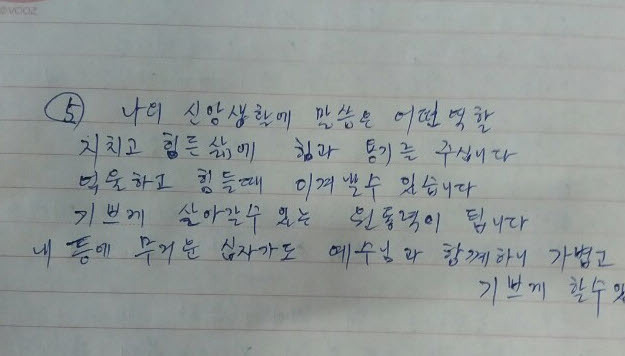 @VOOZ
⑤ 나의 신앙생활에 말씀은 어떤역할
지치고 힘든삶에 힘과 용기를 주십니다
억울하고 힘들때 이겨낼수 있습니다
기쁘게 살아갈수 있는 원동력이 됩니다
내 등에 무거운 십자가도 예수님과 함께하니 가볍고
기쁘게 할수있